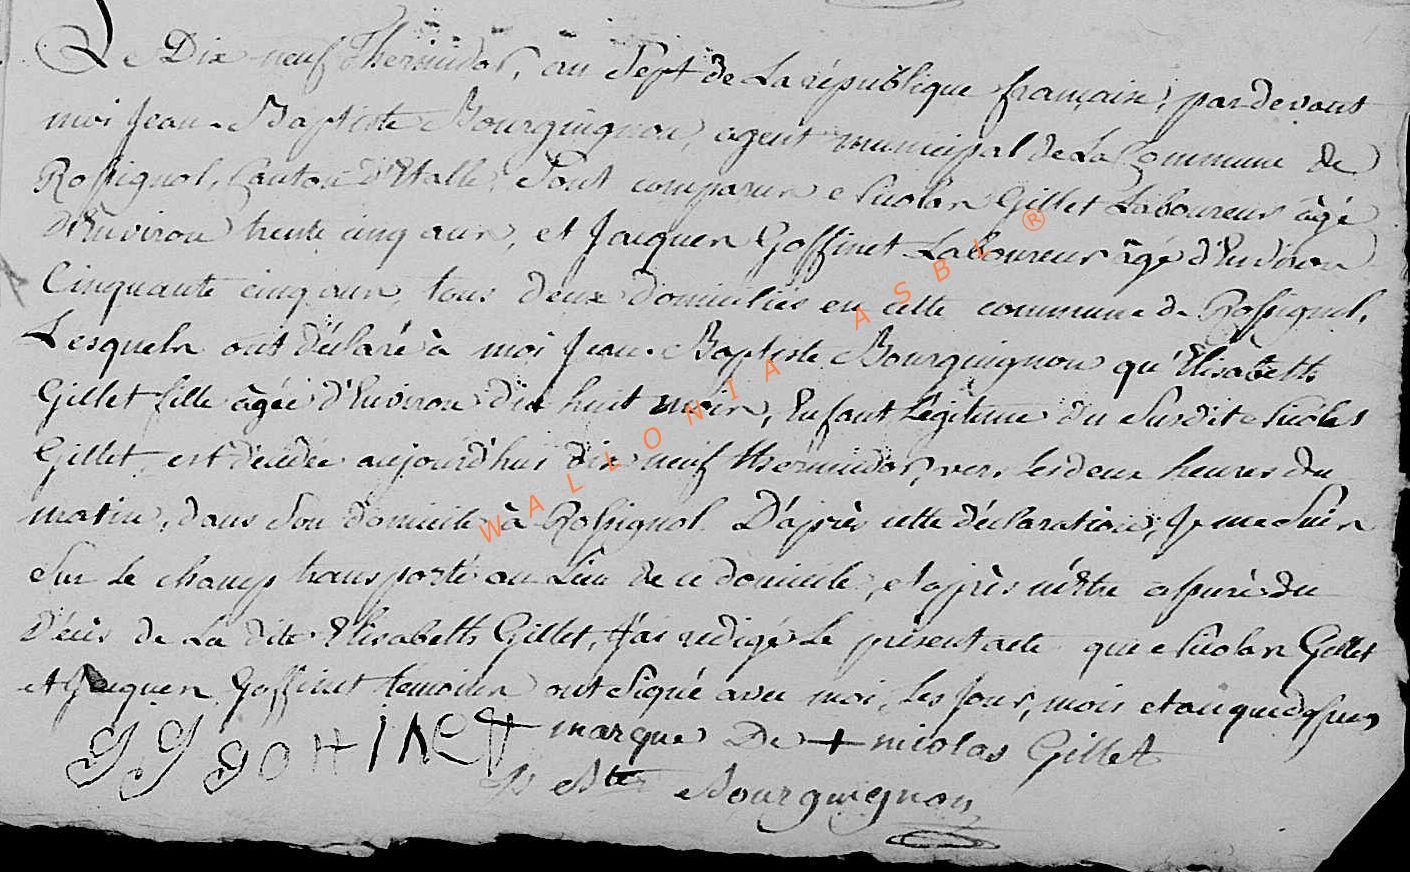 Le Dix neuf Thermidor, an Sept de La république française, pardevant
moi Jean-Baptiste Bourguignon, agent municipal de La Commune de
Rossignol, Canton d'Etalle, Sont comparus Nicolas Gillet Laboureur âgé
d'Environ trente cinq ans, et Jacques Goffinet Laboureur âgé d'Environ
Cinquante cinq ans, tous deux domiciliés en cette commune de Rossignol,
Lesquels ont déclaré à moi Jean-Baptiste Bourguignon qu'Elisabeth
Gillet fille âgée d'Environ dix huit mois, Enfant Légitime du Susdit Nicolas
Gillet, est décédée aujourd'hui dix neuf thermidor, vers les deux heures du
matin, dans Son domicile à Rossignol. D'après cette déclaration, Je me Suis
Sur le champ transporté au Lieu de ce domicile, et après m'être assuré du
Décès de La dite Elisabeth Gillet, J'ai rédigé Le présent acte que Nicolas Gillet
et Jacques Goffinet temoins ont Signé avec moi, Les Jour, mois et an que dessus
marque De + nicolas Gillet
J Bte Bourguignon
WALLONIA ASBL ®